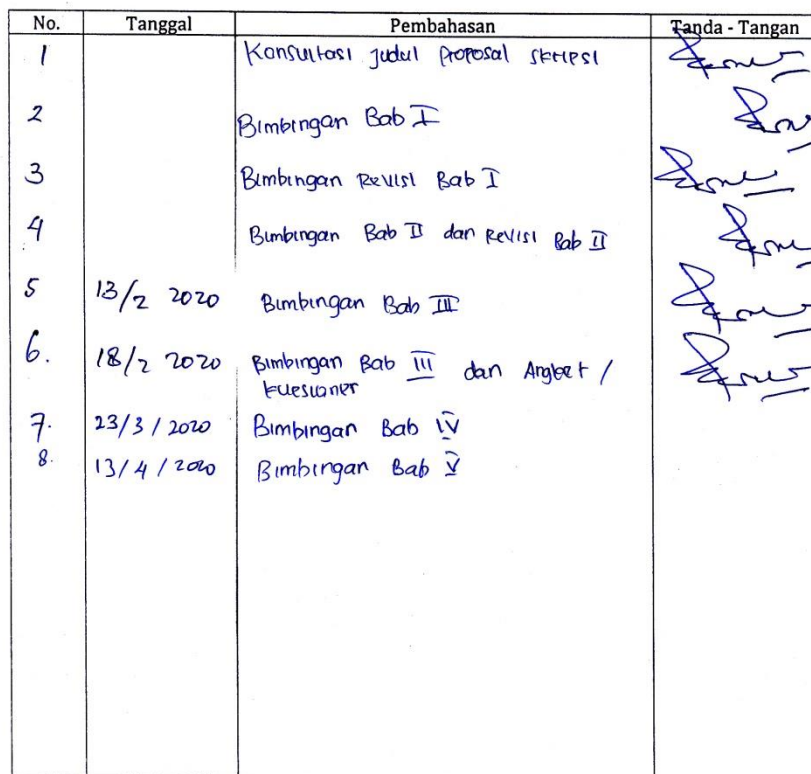 No. Tanggal Pembahasan Tanda - Tangan
1 Konsultasi Judul Proposal Skripsi
2 Bimbingan Bab I
3 Bimbingan Revisi Bab I
4 Bimbingan Bab II dan Revisi Bab II
5 13/2 2020 Bimbingan Bab III
6. 18/2 2020 Bimbingan Bab III dan Angket /
kuesioner
7. 23/3/2020 Bimbingan Bab IV
8. 13/4/2020 Bimbingan Bab V